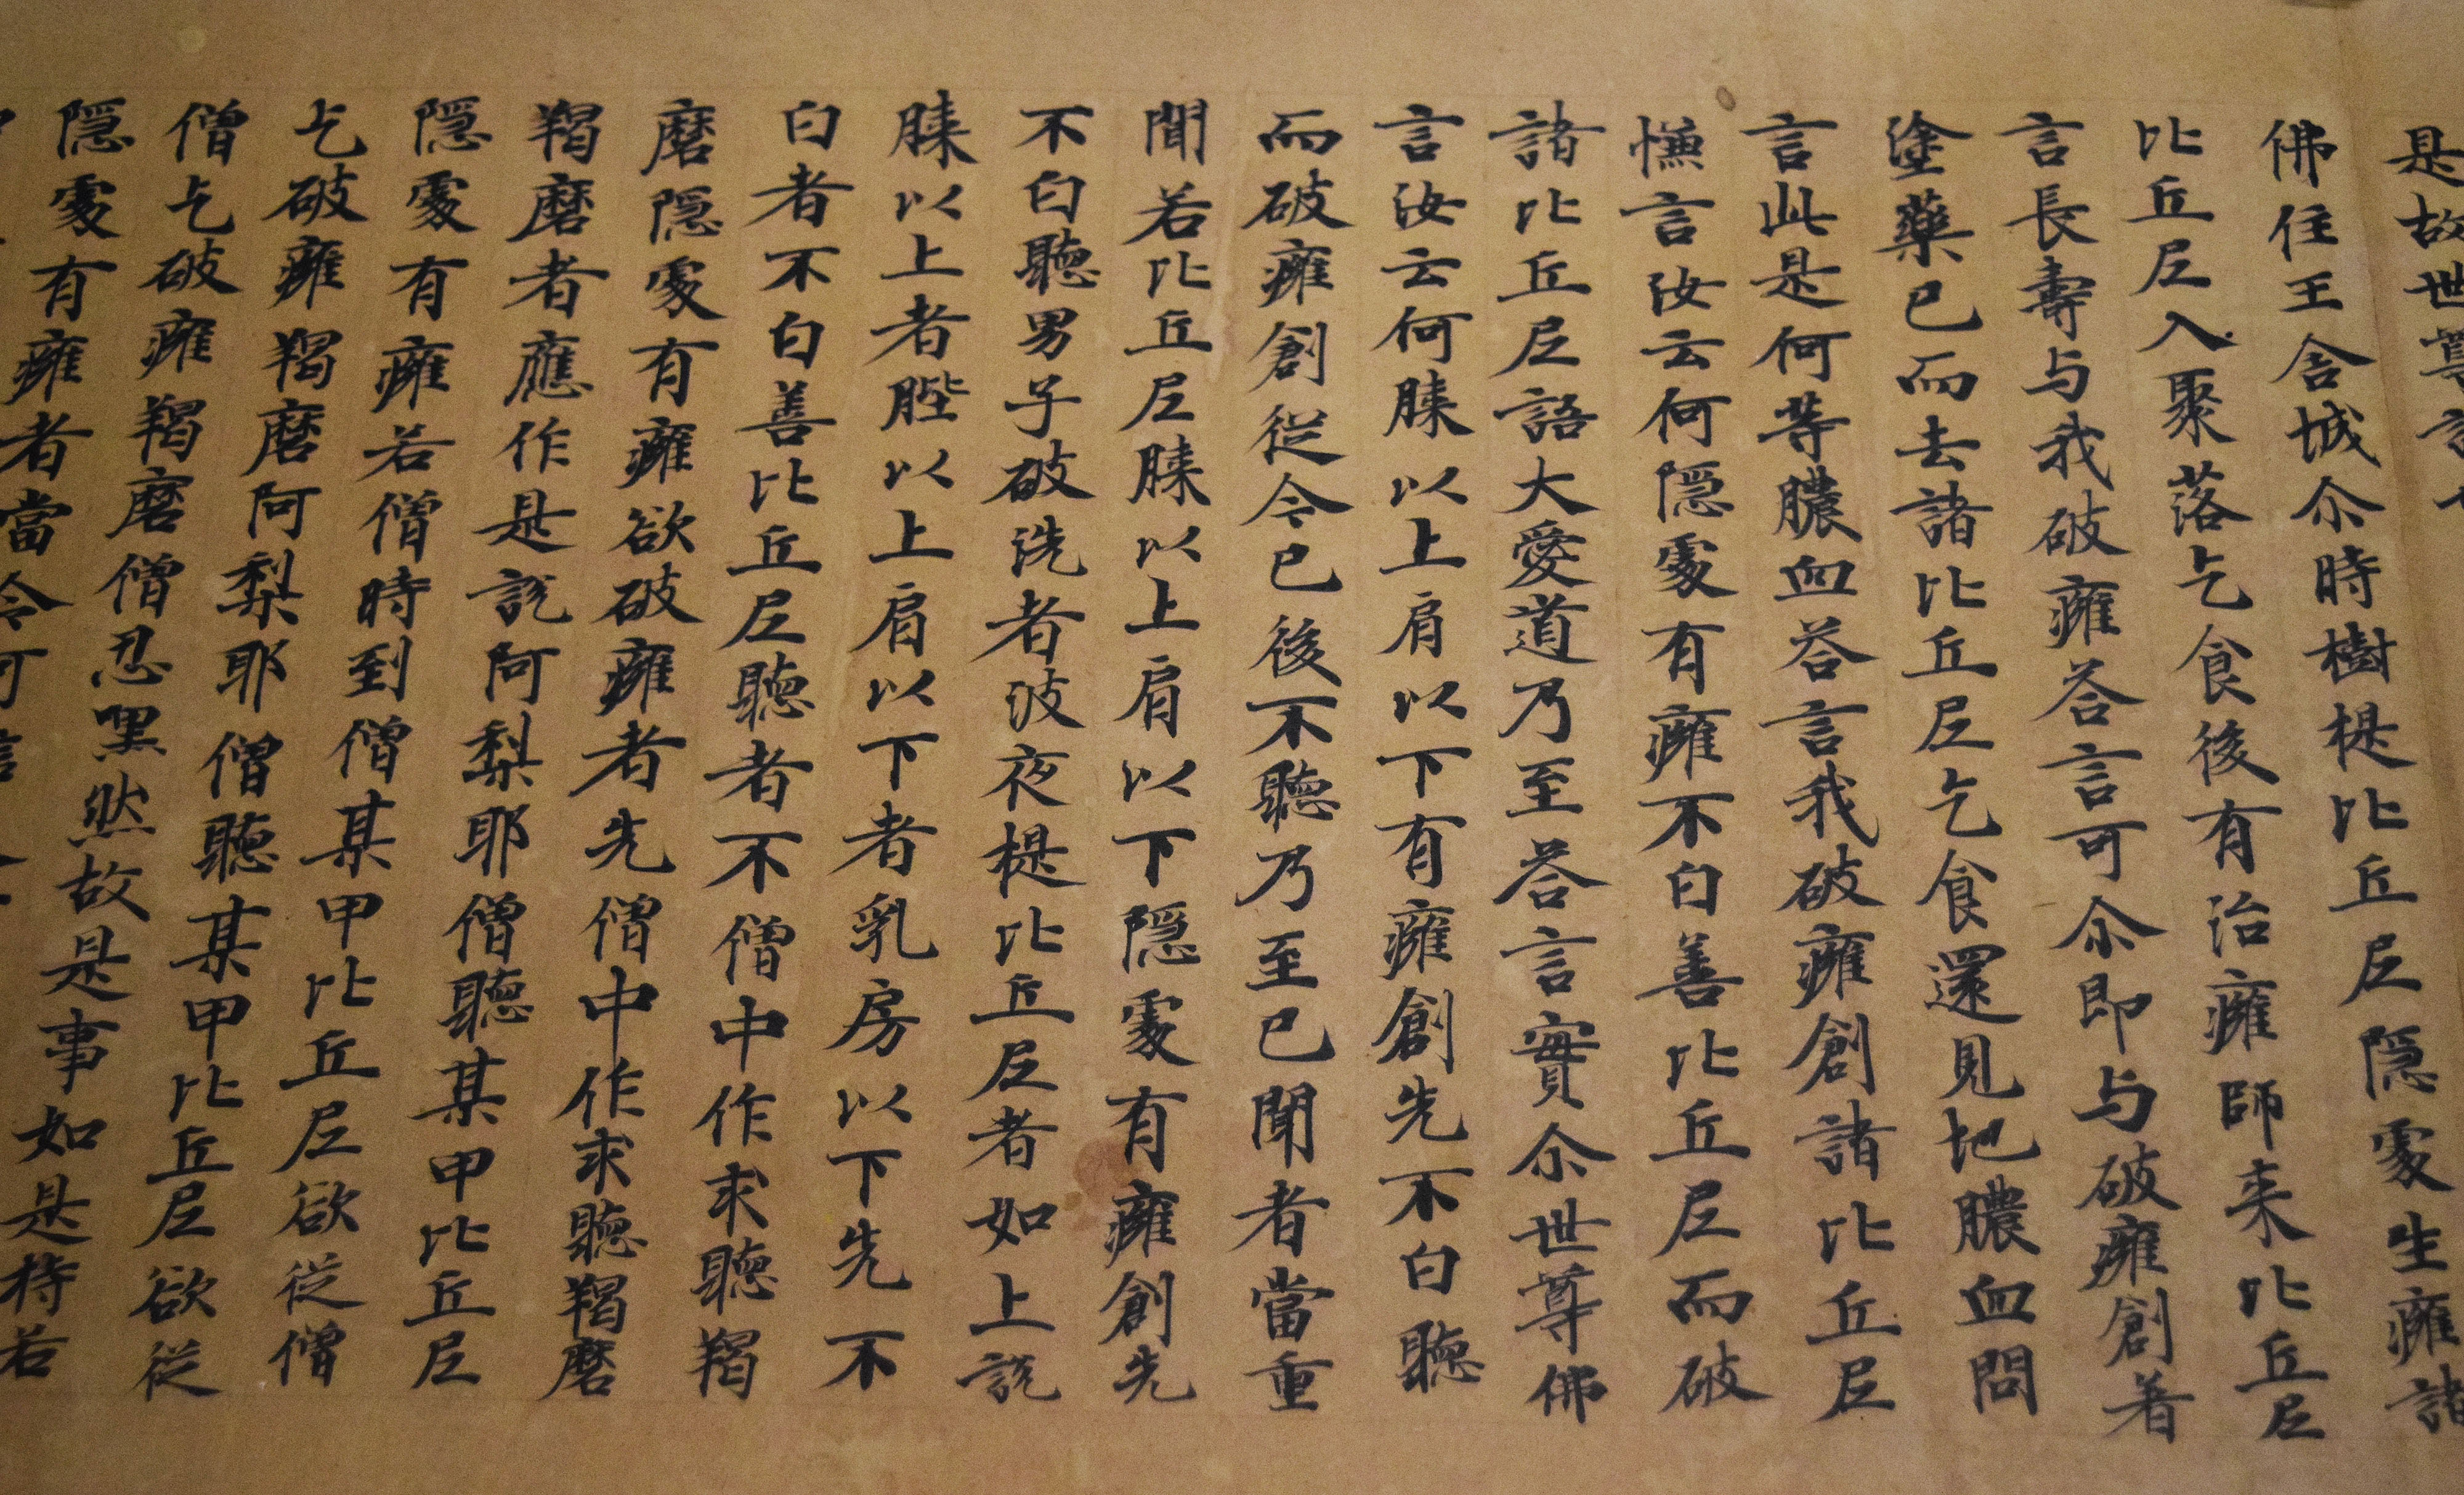 是故世尊
佛住王舍城尒時樹提比丘尼隱處生癰諸
比丘尼入聚落乞食後有治癰師来比丘尼
言長壽与我破癰荅言可尒即与破癰創著
塗藥已而去諸比丘尼乞食還見地膿血問
言此是何等膿血荅言我破癰創諸比丘尼
慊言汝云何隱處有癰不白善比丘尼而破
諸比丘尼語大愛道乃至荅言實尒世尊佛
言汝云何膝以上肩以下有癰創先不白聽
而破癰創従今已後不聽乃至已聞者當重
聞若比丘尼膝以上肩以下隱處有癰創先
不白聽男子破洗者波夜提比丘尼者如上説
膝以上者䏶以上肩以下者乳房以下先不
白者不白善比丘尼聽者不僧中作求聽羯
磨隱處有癰欲破癰者先僧中作求聽羯磨
羯磨者應作是説阿梨耶僧聽某甲比丘尼
隱處有癰若僧時到僧某甲比丘尼欲従僧
乞破癰羯磨阿梨耶僧聽某甲比丘尼欲従
僧乞破癰羯磨僧忍嘿然故是事如是持若
隱處有癰者當令可信